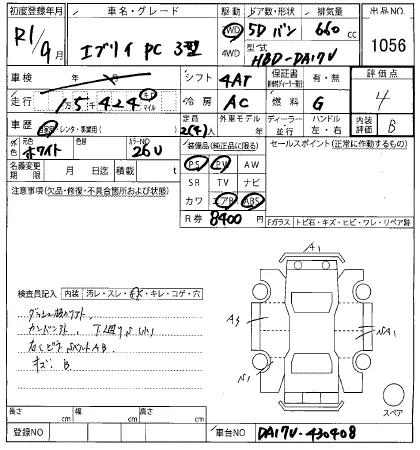 初度登録年月 車名・グレード ドア数・形状 排気量 出品NO
R1/9月 エブリイ PC 3型 2WD 4WD 5D バン 660 cc 1056
型式 HBD-DA17V
車検 年 月 シフト 4AT 保証書 有・無 評価点
走行 1万5千424 キロ マイル 冷房 AC 燃料 G 4
車歴 自家用・レンタ・事業用( ) 定員 2(4)人 外車モデル ディーラー 並行 ハンドル 左・右 内装評価 B
外色 元色 ホワイト 色替 カラーNO 26U 装備品(純正品に限る) セールスポイント(正常に作動するもの)
名義変更 月 日迄 積載 t PS PW AW
注意事項(欠品・修復・不具合箇所および状態) SR TV ナビ
カワ エアB ABS
R券 8400円 Fガラス トビ石・キズ・ヒビ・ワレ・リペア跡
A1
検査員記入 内装 汚レ・スレ・キズ・キレ・コゲ・穴
A3 NA1
下廻りS(小)
右Cピラ
キズ B
N1
長さ cm 幅 cm 高さ cm スペア
登録NO 車台NO DA17V-430408